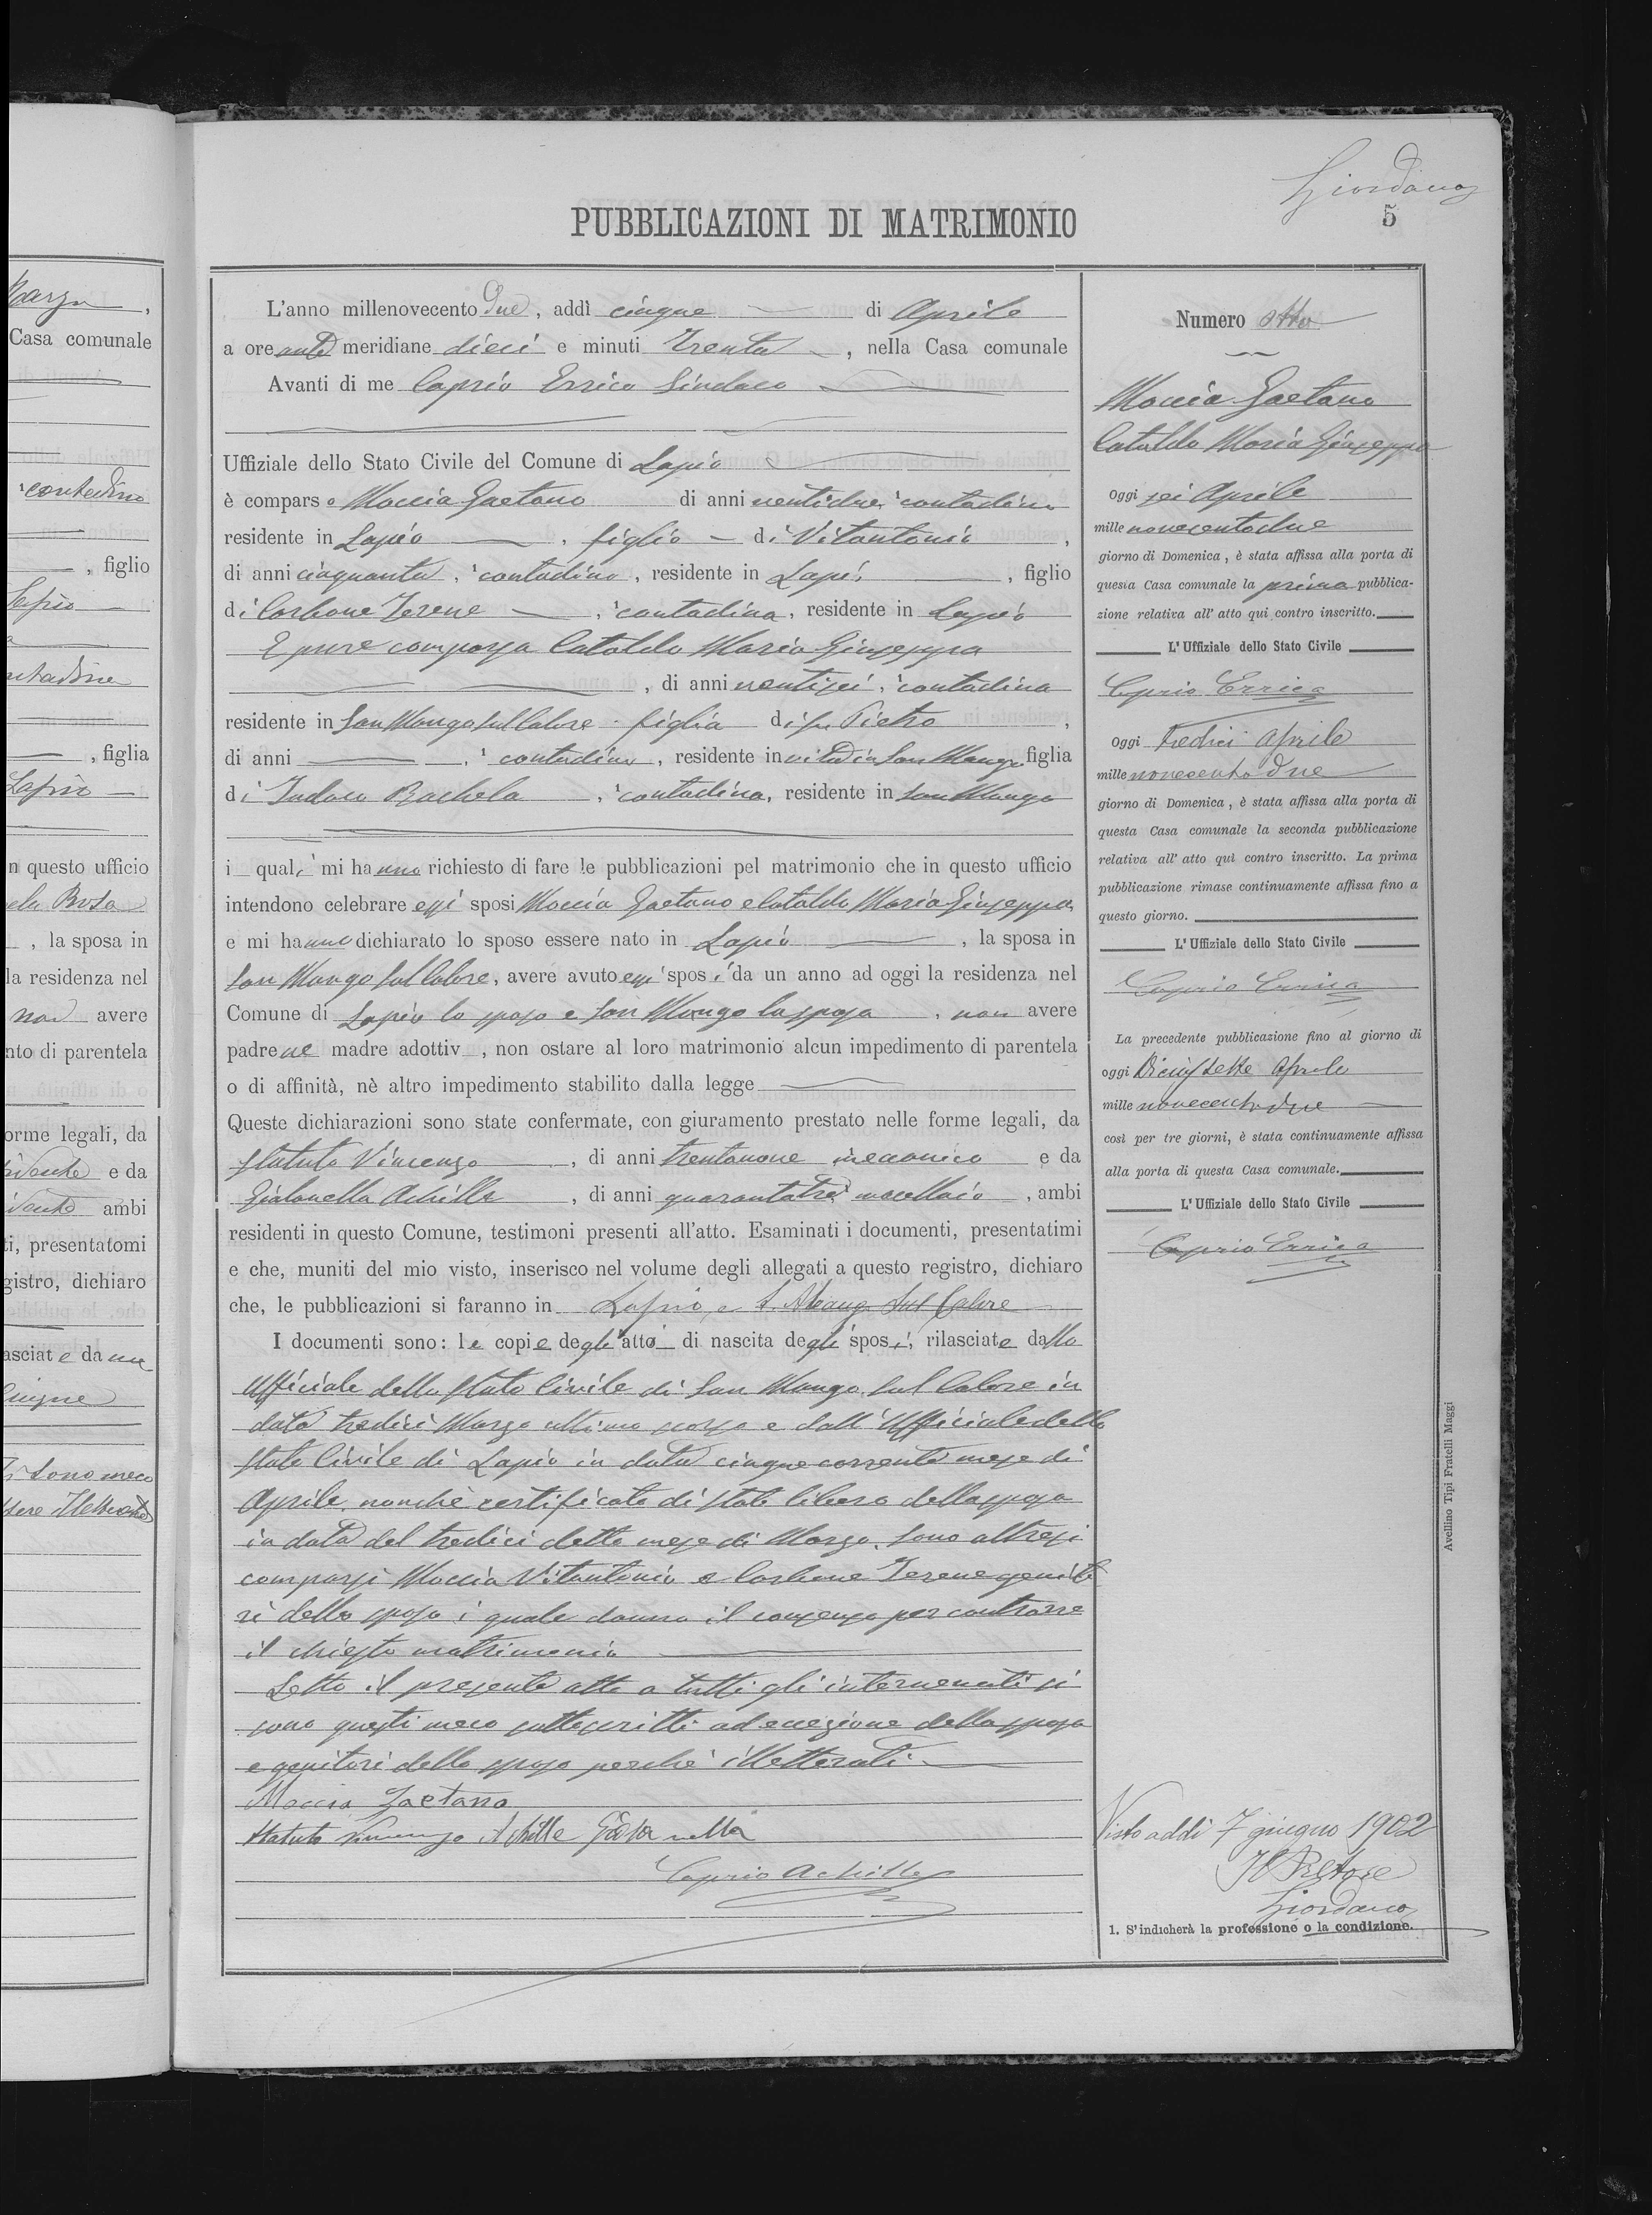 Giordano
5
PUBBLICAZIONI DI MATRIMONIO
L'anno millenovecento due, addì cinque di Aprile
a ore ante meridiane dieci e minuti trenta, nella Casa comunale
Avanti di me Caprio Errico Sindaco
Uffiziale dello Stato Civile del Comune di Lapio
è comparso Moccia Gaetano di anni ventidue, ¹contadino
residente in Lapio, figlio di Vitantonio,
di anni cinquanta, ¹contadino, residente in Lapio, figlio
di Carbone Irene, ¹contadina, residente in Lapio
E pure comparsa Cataldo Maria Giuseppa
, di anni ventisei, ¹contadina
residente in San Mango sul Calore figlia di fu Pietro,
di anni , ¹ contadino, residente in vita in San Mango figlia
di Iodaco Rachela, ¹contadina, residente in San Mango
i quali mi hanno richiesto di fare le pubblicazioni pel matrimonio che in questo ufficio
intendono celebrare essi sposi Moccia Gaetano e Cataldo Maria Giuseppa
e mi hanno dichiarato lo sposo essere nato in Lapio, la sposa in
San Mango sul Calore, avere avuto essi sposi da un anno ad oggi la residenza nel
Comune di Lapio lo sposo e San Mango la sposa, non avere
padre ne madre adottiv , non ostare al loro matrimonio alcun impedimento di parentela
o di affinità, nè altro impedimento stabilito dalla legge
Queste dichiarazioni sono state confermate, con giuramento prestato nelle forme legali, da
Statuto Vincenzo, di anni trentanove meccanico e da
Gialanella Achille, di anni quarantatre, macellaio, ambi
residenti in questo Comune, testimoni presenti all'atto. Esaminati i documenti, presentatimi
e che, muniti del mio visto, inserisco nel volume degli allegati a questo registro, dichiaro
che, le pubblicazioni si faranno in Lapio, e S. Mango Sul Calore
I documenti sono: le copie degli atti di nascita degli sposi, rilasciate dallo
Ufficiale dello Stato Civile di San Mango sul Calore in
data tredici Marzo ultimo scorso e dall'Ufficiale dello
Stato Civile di Lapio in data cinque corrente mese di
Aprile, nonchè certificato di stato libero della sposa
in data del tredici detto mese di Marzo. Sono altresi
comparsi Moccia Vitantonio e Carbone Irene genito
ri dello sposo i quale danno il consenso per contrarre
il chiesto matrimonio
Letto il presente atto a tutti gli intervenuti si
sono questi meco sottoscritti ad eccezione della sposa
e genitori dello sposo perchè illetterati
Moccia Gaetano
Statuto Vincenzo Achille Gialanella
Caprio Achille
Numero otto
Moccia Gaetano
Cataldo Maria Giuseppa
Oggi sei Aprile
mille novecentodue
giorno di Domenica, è stata affissa alla porta di
questa Casa comunale la prima pubblica-
zione relativa all'atto qui contro inscritto.
L'Uffiziale dello Stato Civile
Caprio Errico
Oggi tredici Aprile
mille novecento due
giorno di Domenica, è stata affissa alla porta di
questa Casa comunale la seconda pubblicazione
relativa all'atto quì contro inscritto. La prima
pubblicazione rimase continuamente affissa fino a
questo giorno.
L'Uffiziale dello Stato Civile
Caprio Errico
La precedente pubblicazione fino al giorno di
oggi Diciassette Aprile
mille novecentodue
così per tre giorni, è stata continuamente affissa
alla porta di questa Casa comunale.
L'Uffiziale dello Stato Civile
Caprio Errico
Visto addì 7 giugno 1902
Il Pretore
Giordano
1. S'indicherà la professione o la condizione.
Avellino Tipi Fratelli Maggi
Marzo,
Casa comunale
¹contadino
, figlio
Lapio
contadina
, figlia
Lapio
n questo ufficio
ela Rosa
, la sposa in
la residenza nel
non avere
nto di parentela
orme legali, da
e da
ambi
ti, presentatomi
gistro, dichiaro
asciate da me
Cinque
sono meco